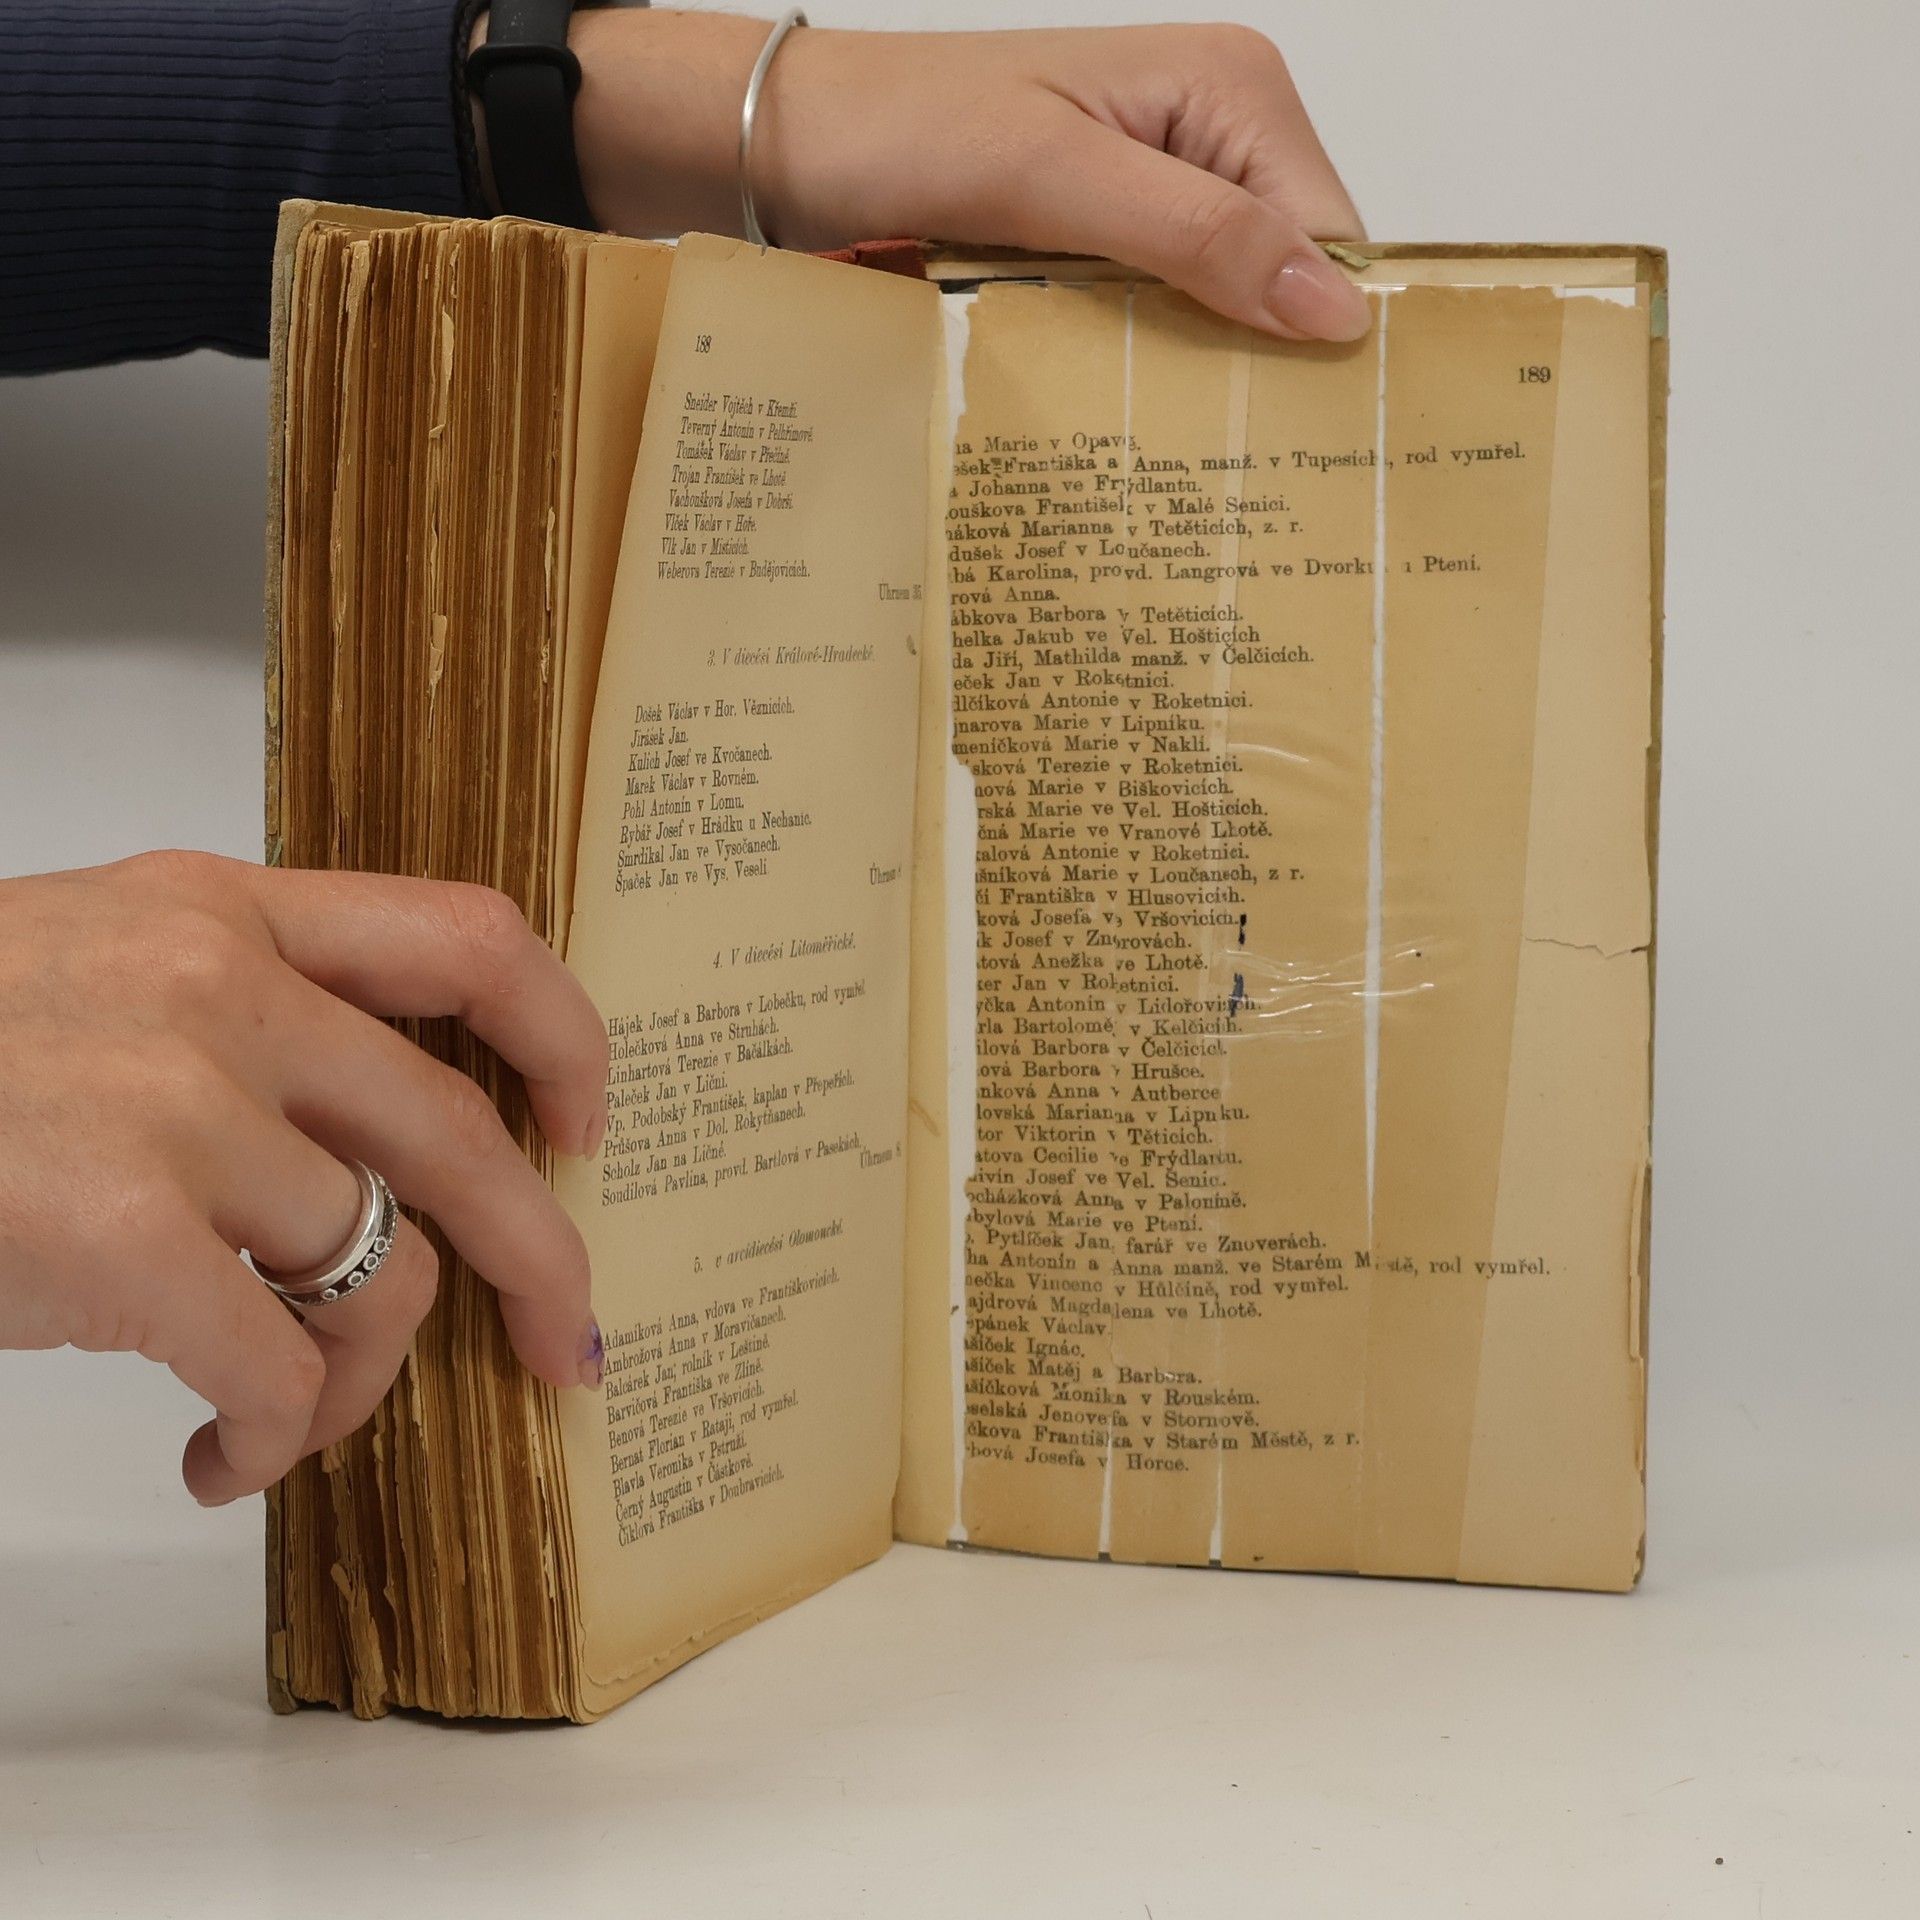 188
Sneider Vojtěch v Křemži.
Teverný Antonín v Pelhřimově.
Tomášek Václav v Přečíně.
Trojan František ve Lhotě.
Vachoušková Josefa v Dobrši.
Vlček Václav v Hoře.
Vlk Jan v Misticích.
Weberova Terezie v Budějovicích.
Úhrnem
3. V diecési Králové-Hradecké.
Došek Václav v Hor. Věznicích.
Jirásek Jan.
Kulich Josef ve Kvočanech.
Marek Václav v Rovném.
Pohl Antonín v Lomu.
Rybář Josef v Hrádku u Nechanic.
Smrdikal Jan ve Vysočanech.
Špaček Jan ve Vys. Veselí
Úhrnem
4. V diecési Litoměřické.
Hájek Josef a Barbora v Lobečku, rod vymřel
Holečková Anna ve Struhách.
Linhartová Terezie v Bačálkách.
Paleček Jan vLiční.
Vp. Podobský František, kaplan v Přepeřích.
Průšova Anna v Dol. Rokytnanech.
Scholz Jan na Ličné.
Soudilová Pavlína, provd. Bartlová v Pasekách.
Úhrnem 8.
5. v arcidiecési Olomoucké.
Adamíková Anna, vdova ve Františkovicích.
Ambrožová Anna v Moravičanech.
Balcárek Jan, rolník v Leštině.
Barvičová Františka ve Zlíně.
Benová Terezie ve Vršovicích.
Bernat Florian v Rataji, rod vymřel.
Blavla Veronika v Pstruží.
Černý Augustin v Částkově.
Čiklová Františka v Doubravicích.
189
na Marie v Opavě.
ešek Františka a Anna, manž. v Tupesích, rod vymřel.
a Johanna ve Frýdlantu.
ouškova František v Malé Senici.
náková Marianna v Tetěticích, z. r.
dušek Josef v Loučanech.
bá Karolina, provd. Langrová ve Dvorku u Ptení.
rová Anna.
ábkova Barbora v Tetěticích.
helka Jakub ve Vel. Hošticích
da Jiří, Mathilda manž. v Čelčicích.
eček Jan v Roketnici.
dlčíková Antonie v Roketnici.
jnarova Marie v Lipníku.
meníčková Marie v Naklí.
sková Terezie v Roketnici.
nová Marie v Biškovicích.
rská Marie ve Vel. Hošticích.
čná Marie ve Vranové Lhotě.
alová Antonie v Roketnici.
šníková Marie v Loučanech, z r.
čí Františka v Hlusovicích.
ková Josefa ve Vršovicích.
k Josef v Znorovách.
tová Anežka ve Lhotě.
ker Jan v Roketnici.
yčka Antonín v Lidořovicích.
rla Bartoloměj v Kelčicích.
ilová Barbora v Čelčicích.
ová Barbora v Hrušce.
nková Anna v Autberce
lovská Marianna v Lipníku.
tor Viktorin v Těticích.
atova Cecilie ve Frýdlantu.
ivín Josef ve Vel. Senic.
ocházková Anna v Palonině.
abylová Marie ve Ptení.
p. Pytlíček Jan, farář ve Znoverách.
ha Antonín a Anna manž. ve Starém Městě, rod vymřel.
nečka Vincenc v Hůlčíně, rod vymřel.
ajdrová Magdalena ve Lhotě.
epánek Václav.
ašíček Ignác.
ašíček Matěj a Barbora.
ašíčková Monika v Rouském.
eselská Jenovefa v Stornově.
čkova Františka v Starém Městě, z r.
bová Josefa v Horce.